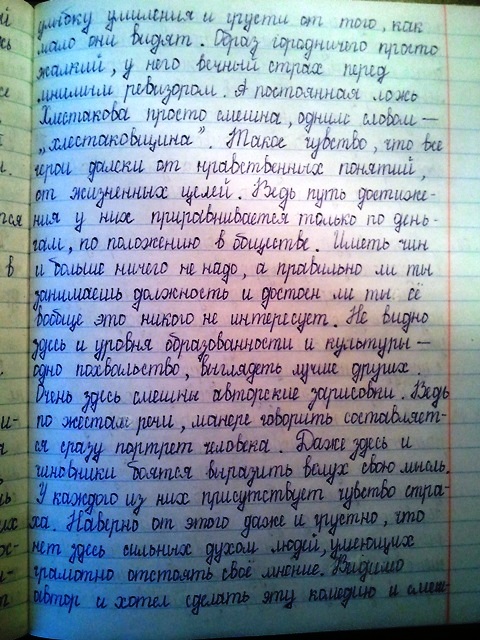 улыбку умиления и грусти от того, как
мало они видят. Образ городничего просто
жалкий, у него вечный страх перед
мнимым ревизором. А постоянная ложь
Хлестакова просто смешна, одним словом —
„хлестаковщина". Такое чувство, что все
герои далеки от нравственных понятий,
от жизненных целей. Ведь путь достиже-
ния у них приравнивается только по день-
гам, по положению в обществе. Иметь чин
и больше ничего не надо, а правильно ли ты
занимаешь должность и достоен ли ты её
вообще это никого не интересует. Не видно
здесь и уровня образованности и культуры —
одно похвальство, выглядеть лучше других.
Очень здесь смешны авторские зарисовки. Ведь
по жестам речи, манере говорить составляет-
ся сразу портрет человека. Даже здесь и
чиновники боятся выразить вслух свою мысль.
У каждого из них присутствует чувство стра-
ха. Наверно от этого даже и грустно, что
нет здесь сильных духом людей, умеющих
грамотно отстоять своё мнение. Видимо
автор и хотел сделать эту комедию и смеш-